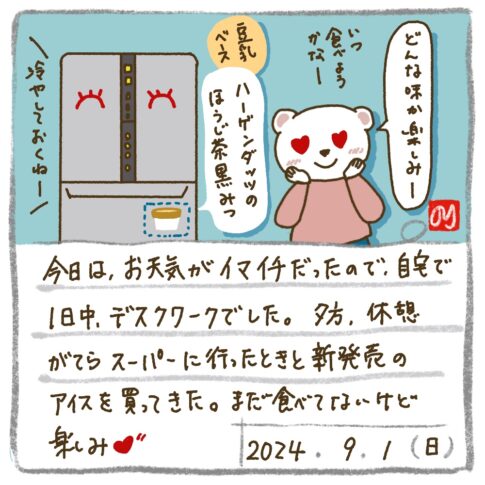 どんな味か楽しみー
いつ
食べよう
かなー
豆乳
ベース
ハーゲンダッツの
ほうじ茶黒みつ
冷やしておくねー
今日は、お天気がイマイチだったので、自宅で
1日中、デスクワークでした。夕方、休憩
がてらスーパーに行ったときと新発売の
アイスを買ってきた。まだ食べてないけど
楽しみ❤〃
2024.9.1(日)